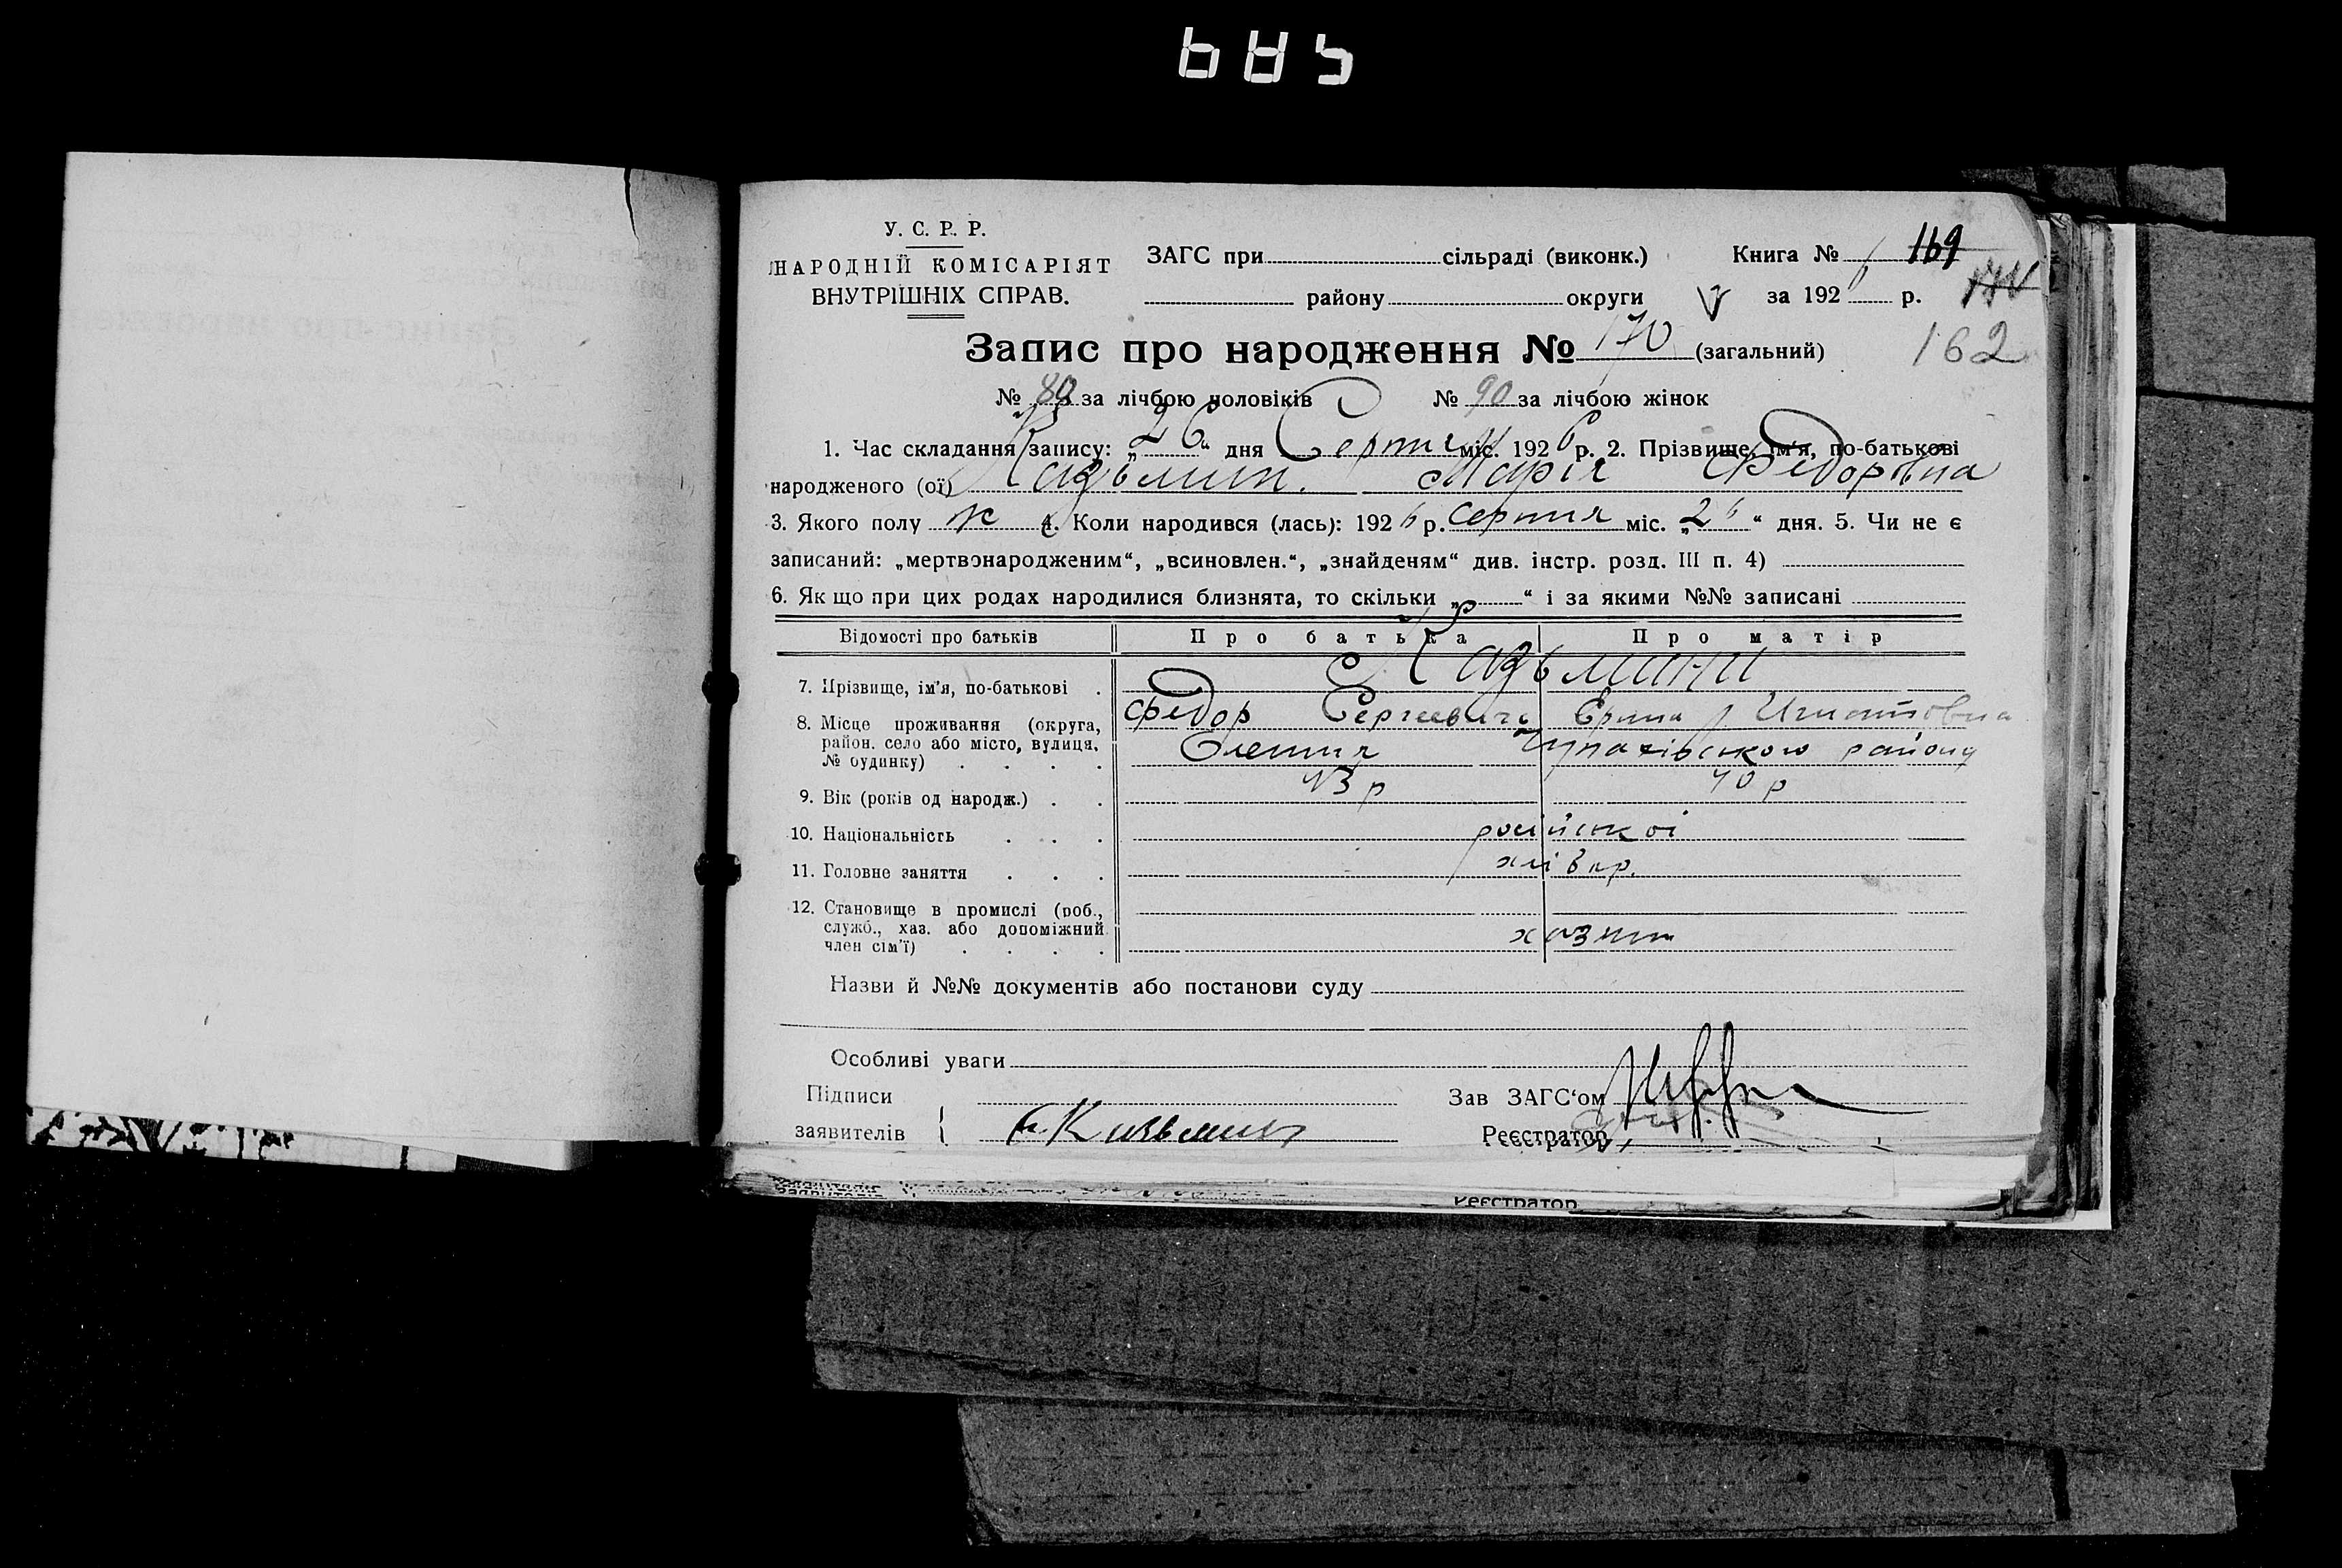 У. С. Р. Р.
НАРОДНІЙ КОМІСАРІЯТ
ВНУТРІШНІХ СПРАВ.
ЗАГС при сільраді (виконк.)
району округи
Книга № 169
за 1926 р.
162
Запис про народження № 170 (загальний)
№ 80 за лічбою чоловіків № 90 за лічбою жінок
1. Час складання запису: „26“ дня Серпня міс. 1926 р. 2. Прізвище, ім'я, по-батькові
народженого (ої) Казьмин. Марія Федорівна
3. Якого полу ж 4. Коли народився (лась): 1926 р. серпня міс. „26“ дня. 5. Чи не є
записаний: „мертвонародженим“, „всиновлен.“, „знайденям“ див. інстр. розд. III п. 4)
6. Як що при цих родах народилися близнята, то скільки „ “ і за якими №№ записані
Відомості про батьків Про батька Про матір
7. Прізвище, ім'я, по-батькові . Казьмини
8. Місце проживання (округа, Федор Сергеевич
район. село або місто, вулиця, району
№ будинку) . . . .
9. Вік (років од народж.) . . 43 р 40 р
10. Національність . . . російскої
11. Головне заняття . . . хлівкр.
12. Становище в промислі (роб.,
служб., хаз. або допоміжний
член сім'ї) . . . .
Назви й №№ документів або постанови суду
Особливі уваги
Підписи
заявителів
Казьмин
Зав ЗАГС‘ом
Реєстратор
Реєстратор